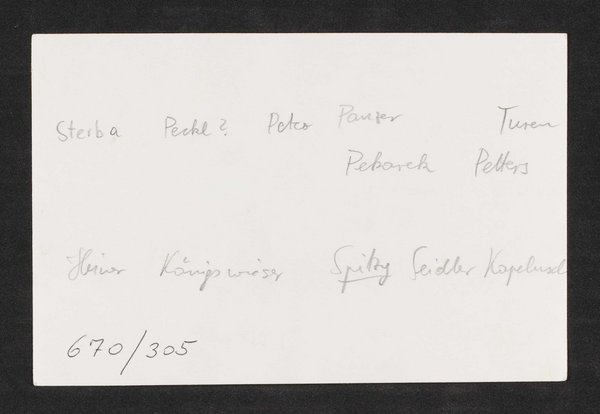 Sterba Peckl? Peter Panzer Turen
Pekarek Petters
Heiner Königswieser Spitzy Seidler Kapelusch
670/305